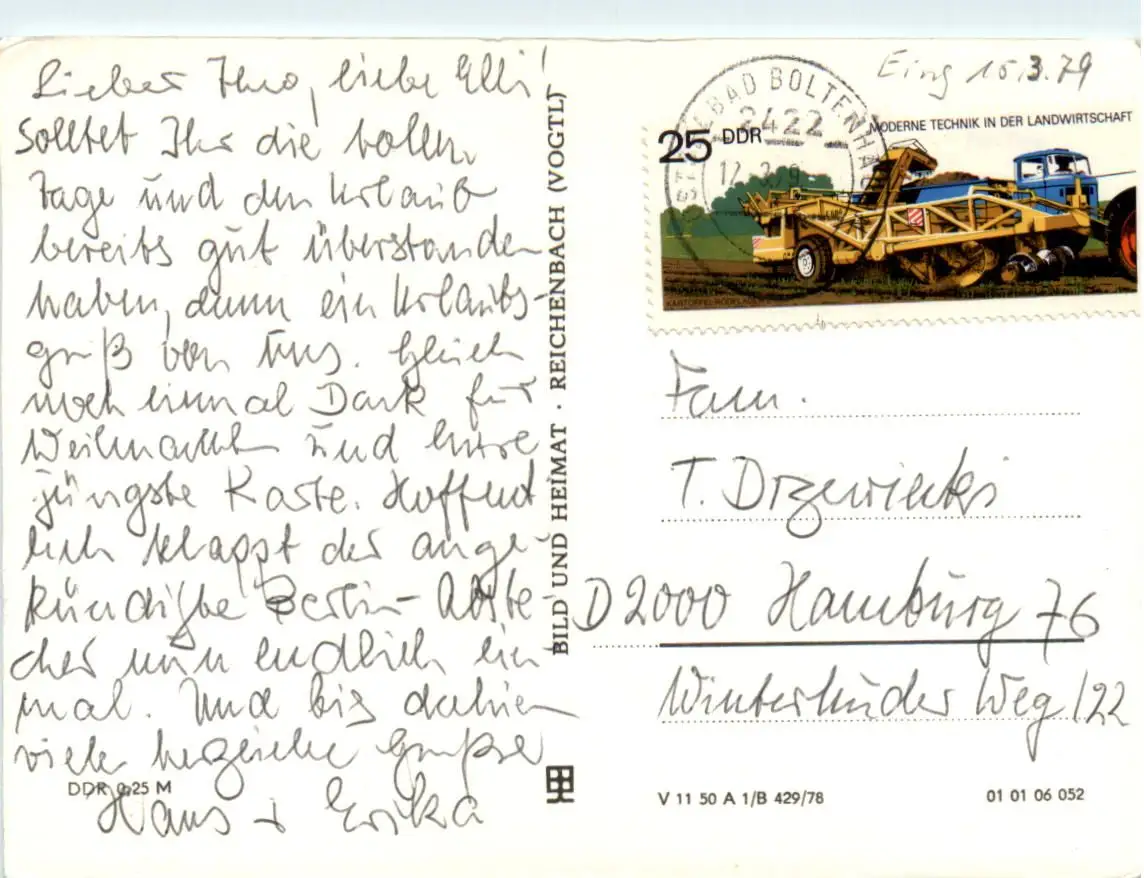 Lieber Theo, liebe Elli!
Solltet Ihr die tollen
Tage und den Urlaub
bereits gut überstanden
haben, dann ein Urlaubs-
gruß von uns. Gleich
noch einmal Dank für
Weihnachten und Eure
jüngste Karte. Hoffent
lich klappt der ange-
kündigte Berlin-Abste
cher nun endlich ein
mal. Und bis dahin
viele herzliche Grüße
Hans + Erika
DDR 0,25 M
BILD UND HEIMAT · REICHENBACH (VOGTL)
Eing 15.3.79
BAD BOLTENHA
2422
25 DDR
MODERNE TECHNIK IN DER LANDWIRTSCHAFT
Fam.
T. Drzewiecki
D 2000 Hamburg 76
Winterhuder Weg 122
V 11 50 A 1/B 429/78
01 01 06 052